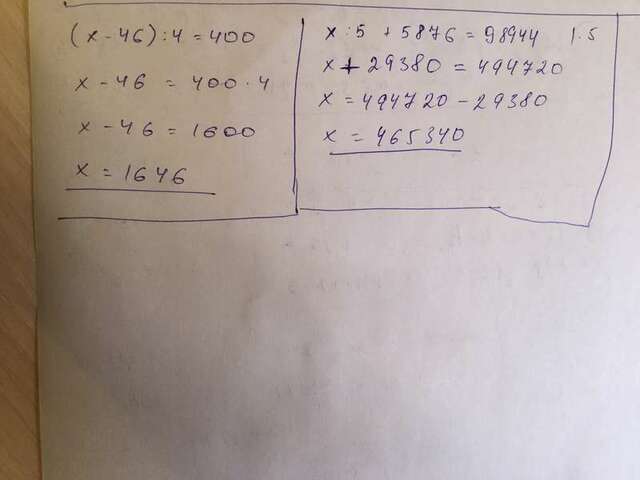 (x-46):4=400
x-46 = 400·4
x-46=1600
x=1646
x:5+5876=98944 |·5
x+29380=494720
x=494720-29380
x=465340